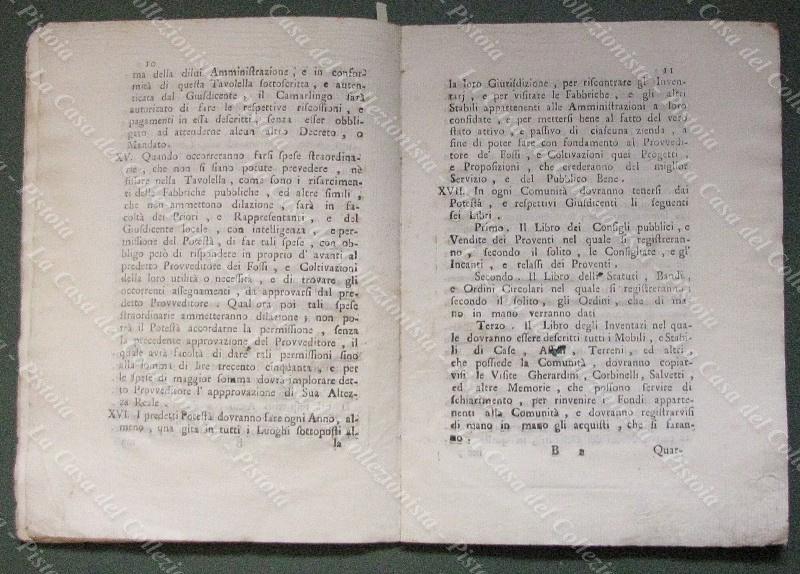 10
ma della dilui Amministrazione , e in confor-
mità di questa Tavolella sottoscritta , e auten-
ticata dal Giusdicente , il Camarlingo sarà
autorizato di fare le respettive riscossioni , e
pagamenti in essa descritti , senza esser obbli-
gato ad attenderne alcun altro Decreto , o
Mandato.
XV. Quando occorreranno farsi spese straordina-
rie , che non si siano potute prevedere , nè
fissare nella Tavolella , come sono i risarcimen-
ti delle Fabbriche pubbliche , ed altre simili ,
che non ammettono dilazione , sarà in fa-
coltà dei Priori , e Rappresentanti , e del
Giusdicente locale , con intelligenza , e per-
missione del Potestà , di far tali spese , con ob-
bligo però di rispondere in proprio d' avanti al
predetto Provveditore dei Fossi , e Coltivazioni
della loro utilità o necessità , e di trovare gli
occorrenti assegnamenti , da approvarsi dal pre-
detto Provveditore . Qualora poi tali spese
straordinarie ammetteranno dilazione , non po-
trà il Potestà accordarne la permissione , senza
la precedente approvazione del Provveditore , il
quale avrà facoltà di dare tali permissioni sino
alla somma di lire trecento cinquanta , e per
le spese di maggior somma dovrà implorare det-
to Provveditore l' appprovazione di Sua Altez-
za Reale .
XVI. I predetti Potestà dovranno fare ogni Anno , al-
meno , una gita in tutti i Luoghi sottoposti al-
la
11
la loro Giurisdizione , per riscontrare gl' Inven-
tarj , e per visitare le Fabbriche , e gli altri
Stabili appartenenti alle Amministrazioni a loro
considate , e per mettersi bene al fatto del vero
stato attivo , e passivo di ciascuna zienda , a
fine di poter fare con fondamento al Provvedi-
tore de' Fossi , e Coltivazioni quei Progetti ,
e Proposizioni , che crederanno del miglior
Servizio , e del Pubblico Bene .
XVII. In ogni Comunità dovranno tenersi dai
Potestà , e respettivi Giusdicenti li seguenti
sei Libri .
Primo . Il Libro dei Consigli pubblici , e
Vendite dei Proventi nel quale si registreran-
no , secondo il solito , le Consigliate , e gl'
Incanti , e relassi dei Proventi .
Secondo . Il Libro delli Statuti , Bandi ,
e Ordini Circolari nel quale si registreranno ,
secondo il solito , gli Ordini , che di ma-
no in mano verranno dati
Terzo . Il Libro degli Inventari nel qua-
le dovranno essere descritti tutti i Mobili , e Stabi-
li di Case , Terreni , ed altri
che possiede la Comunità , dovranno copiar-
visi le Visite Gherardini , Corbinelli , Salvetti ,
ed altre Memorie , che possono servire di
schiarimento , per rinvenire i Fondi apparte-
nenti alla Comunità , e dovranno registrarvisi
di mano in mano gli acquisti , che si faran-
no .
B 2
Quar-
La Casa del Collezionista - Pistoia